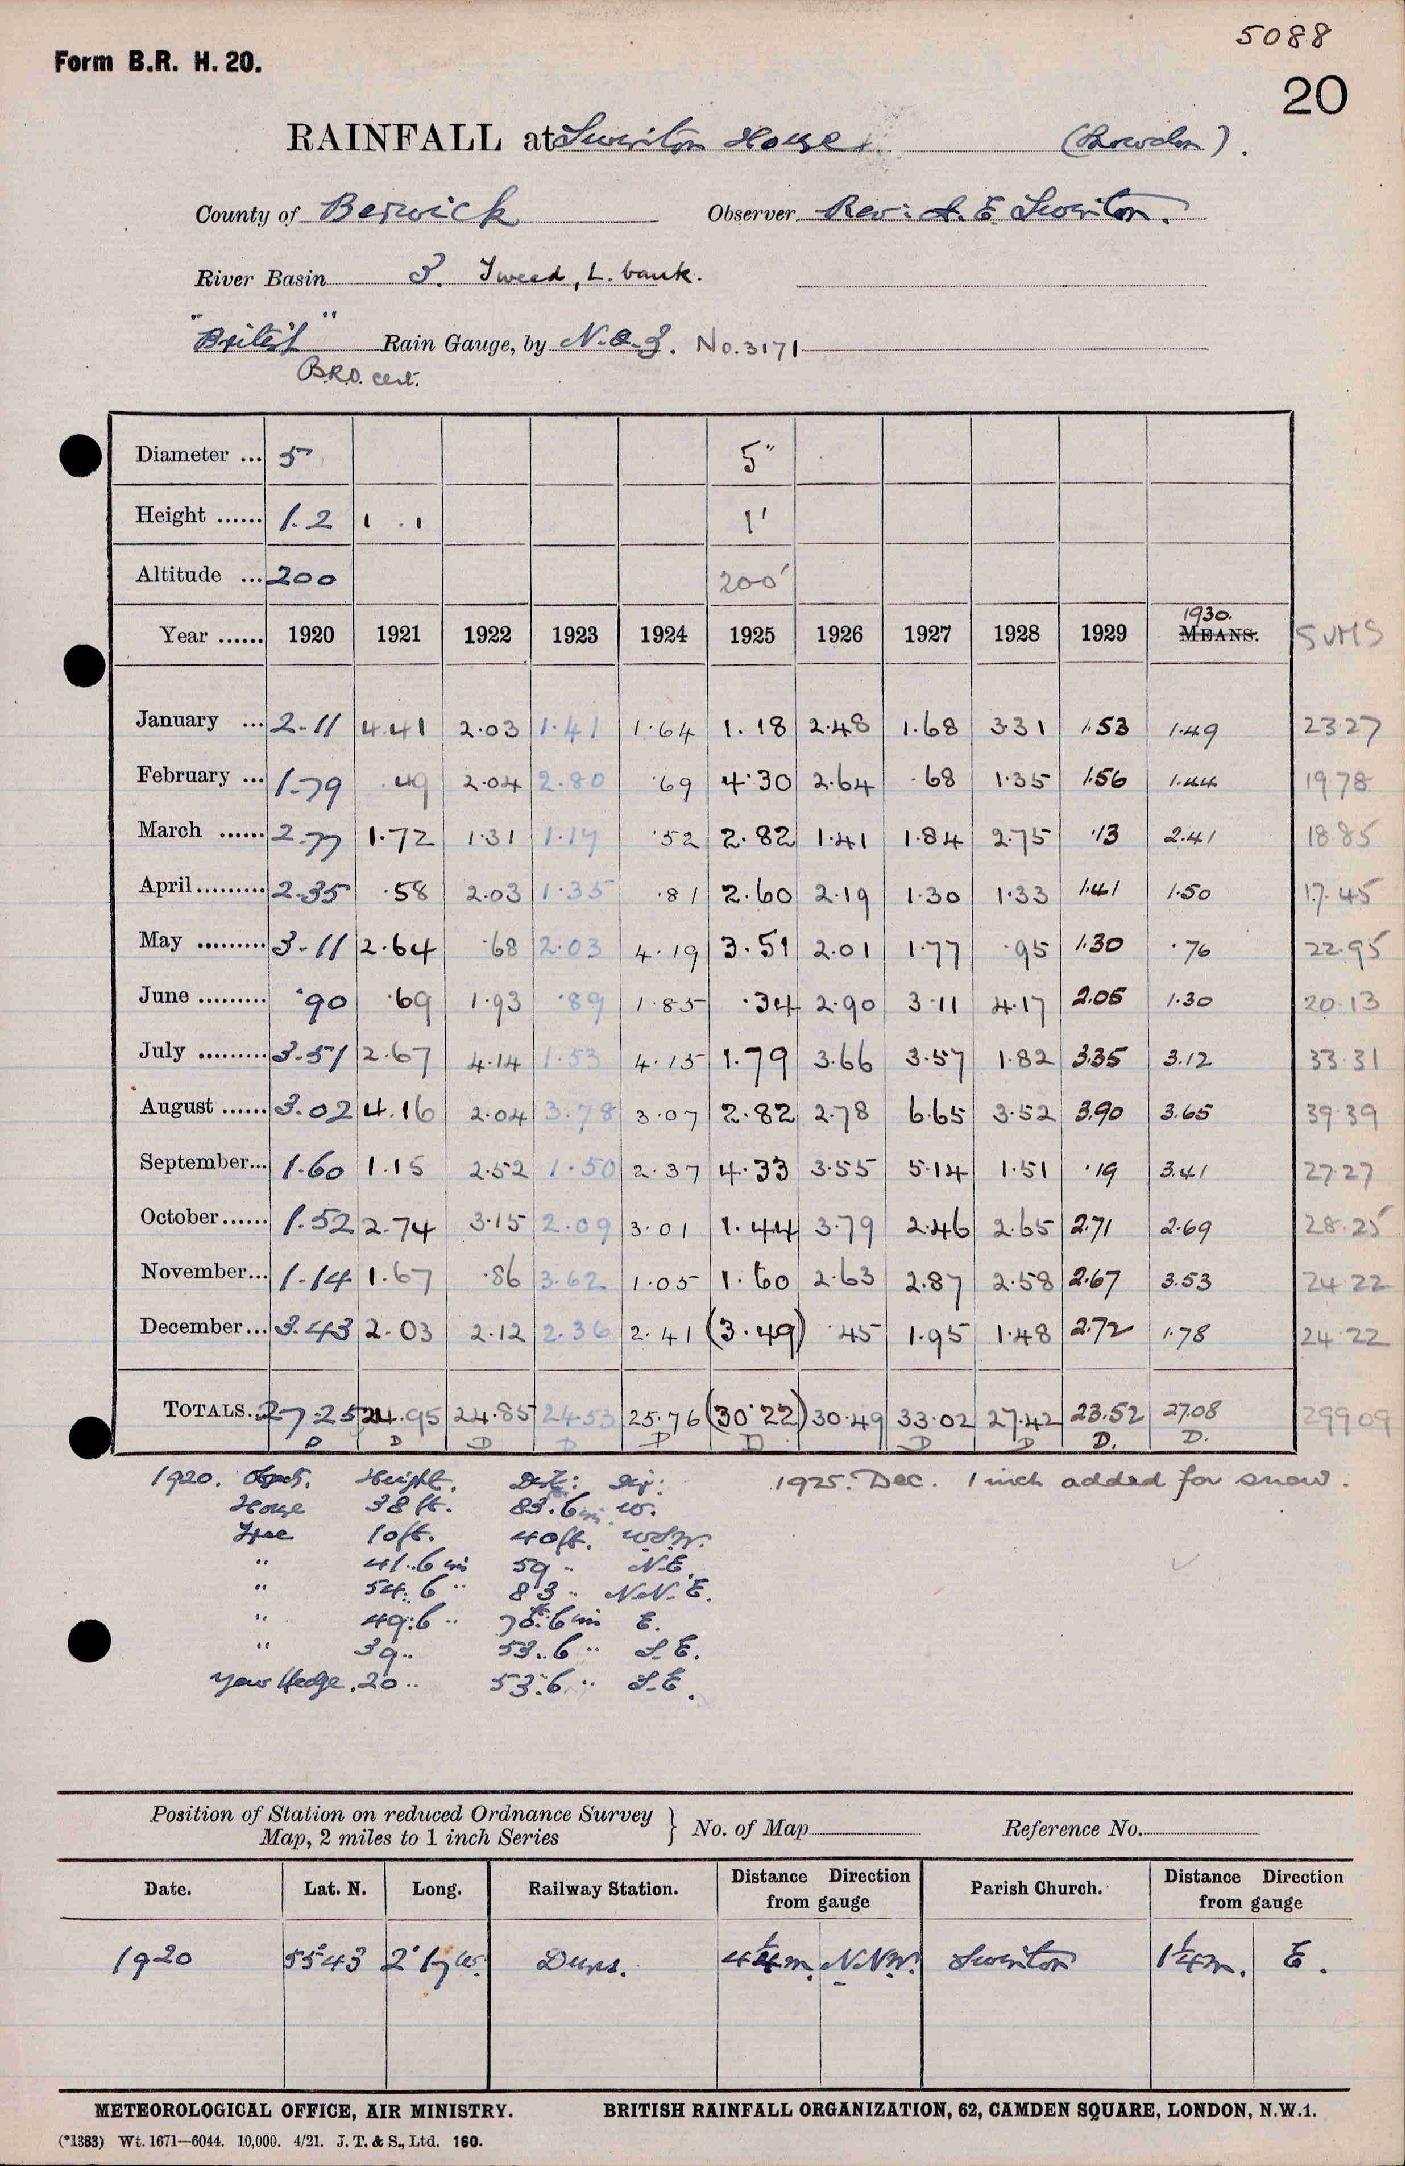 5088
Form B.R. H. 20.
20
RAINFALL at Swinton House. (Gavdon).
County of Berwick Observer Rev: A. E. Swinton.
River Basin 3. Tweed, L. bank.
"British" Rain Gauge, by N.&Z. No. 3171
B.R.O. cert.
Diameter ... 5 5"
Height ...... 1.2 1 . 1 1'
Altitude ... 200 200'
1930.
Year ...... 1920 1921 1922 1923 1924 1925 1926 1927 1928 1929 MEANS. SUMS
January ... 2.11 4.41 2.03 1.41 1.64 1.18 2.48 1.68 3.31 1.53 1.49 23.27
February ... 1.79 .49 2.04 2.80 .69 4.30 2.64 .68 1.35 1.56 1.44 19.78
March ...... 2.77 1.72 1.31 1.17 .52 2.82 1.41 1.84 2.75 .13 2.41 18.85
April......... 2.35 .58 2.03 1.35 .81 2.60 2.19 1.30 1.33 1.41 1.50 17.45
May ......... 3.11 2.64 .68 2.03 4.19 3.51 2.01 1.77 .95 1.30 .76 22.95
June ......... .90 .69 1.93 .89 1.85 .34 2.90 3.11 4.17 2.05 1.30 20.13
July ......... 3.51 2.67 4.14 1.53 4.15 1.79 3.66 3.57 1.82 3.35 3.12 33.31
August ...... 3.02 4.16 2.04 3.78 3.07 2.82 2.78 6.65 3.52 3.90 3.65 39.39
September... 1.60 1.15 2.52 1.50 2.37 4.33 3.55 5.14 1.51 .19 3.41 27.27
October...... 1.52 2.74 3.15 2.09 3.01 1.44 3.79 2.46 2.65 2.71 2.69 28.25
November... 1.14 1.67 .86 3.62 1.05 1.60 2.63 2.87 2.58 2.67 3.53 24.22
December... 3.43 2.03 2.12 2.36 2.41 (3.49) .45 1.95 1.48 2.72 1.78 24.22
TOTALS. 27.25 24.95 24.85 24.53 25.76 (30.22) 30.49 33.02 27.42 23.52 27.08 299.09
D D D D D D D D D. D.
1920. Object. Height. Dist: Dir: 1925. Dec. 1 inch added for snow.
House 38 ft. 83.6 in W.
Tree 10 ft. 40 ft. W.S.W.
" 41.6 in 59 " N.E.
" 54.6 " 83 " N.N.E.
" 49.6 " 78.6 in E.
" 39 " 53.6 " S.E.
Yew Hedge. 20 " 53.6 " S.E.
Position of Station on reduced Ordnance Survey
Map, 2 miles to 1 inch Series } No. of Map Reference No.
Date. Lat. N. Long. Railway Station. Distance Direction from gauge Parish Church. Distance Direction from gauge
1920 55°43 2°17 W. Duns. 4¼ m. N.N.W. Swinton 1¼ m. E.
METEOROLOGICAL OFFICE, AIR MINISTRY. BRITISH RAINFALL ORGANIZATION, 62, CAMDEN SQUARE, LONDON, N.W.1.
(*1383) Wt. 1671—6044. 10,000. 4/21. J. T. & S., Ltd. 160.